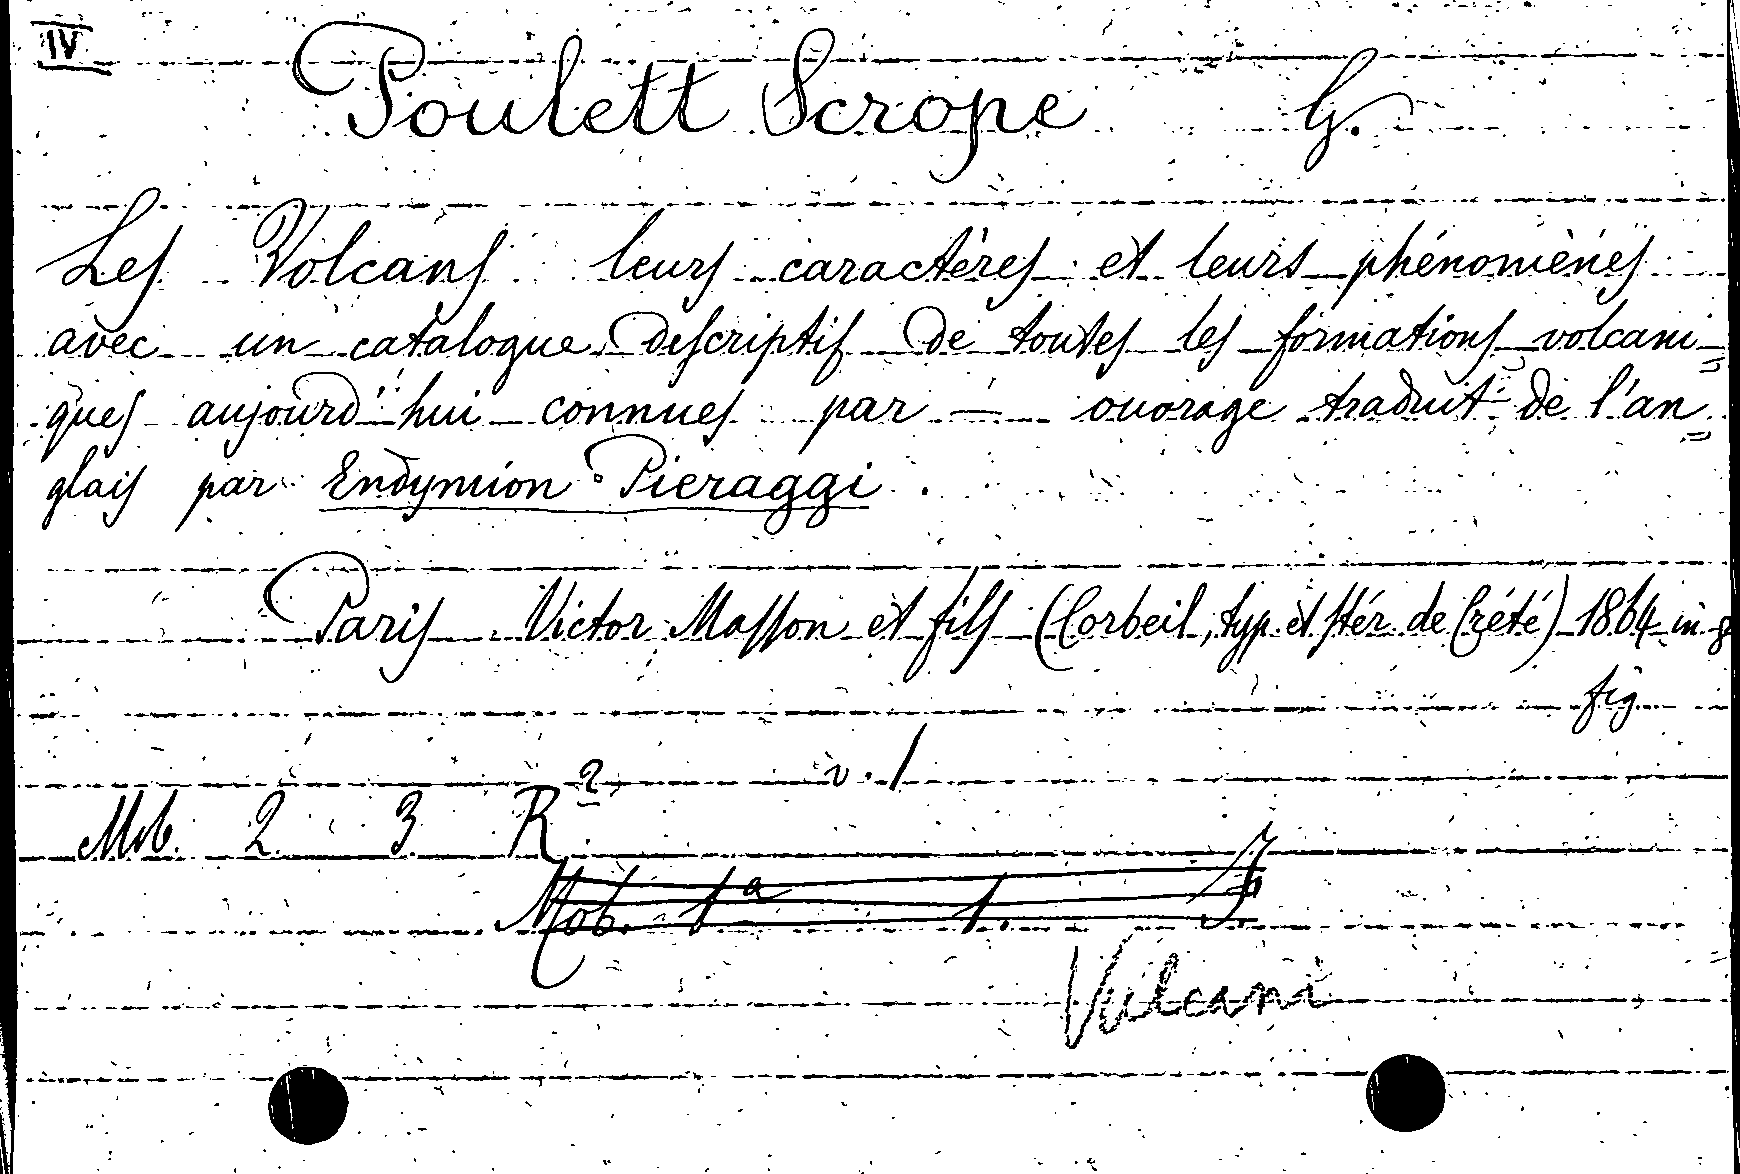 IV
Poulett Scrope G.
Les Volcans leurs caractères et leurs phénomènes
avec un catalogue descriptif de toutes les formations volcani=
ques aujourd'hui connues par — ouvrage traduit de l'an=
glais par Endymion Pieraggi.
Paris Victor Masson et fils (Corbeil, typ. et stér. de Crété) 1864 in 8
fig.
v. 1
Mob. 2. 3. R
Mob. 1a 1.
Vulcani